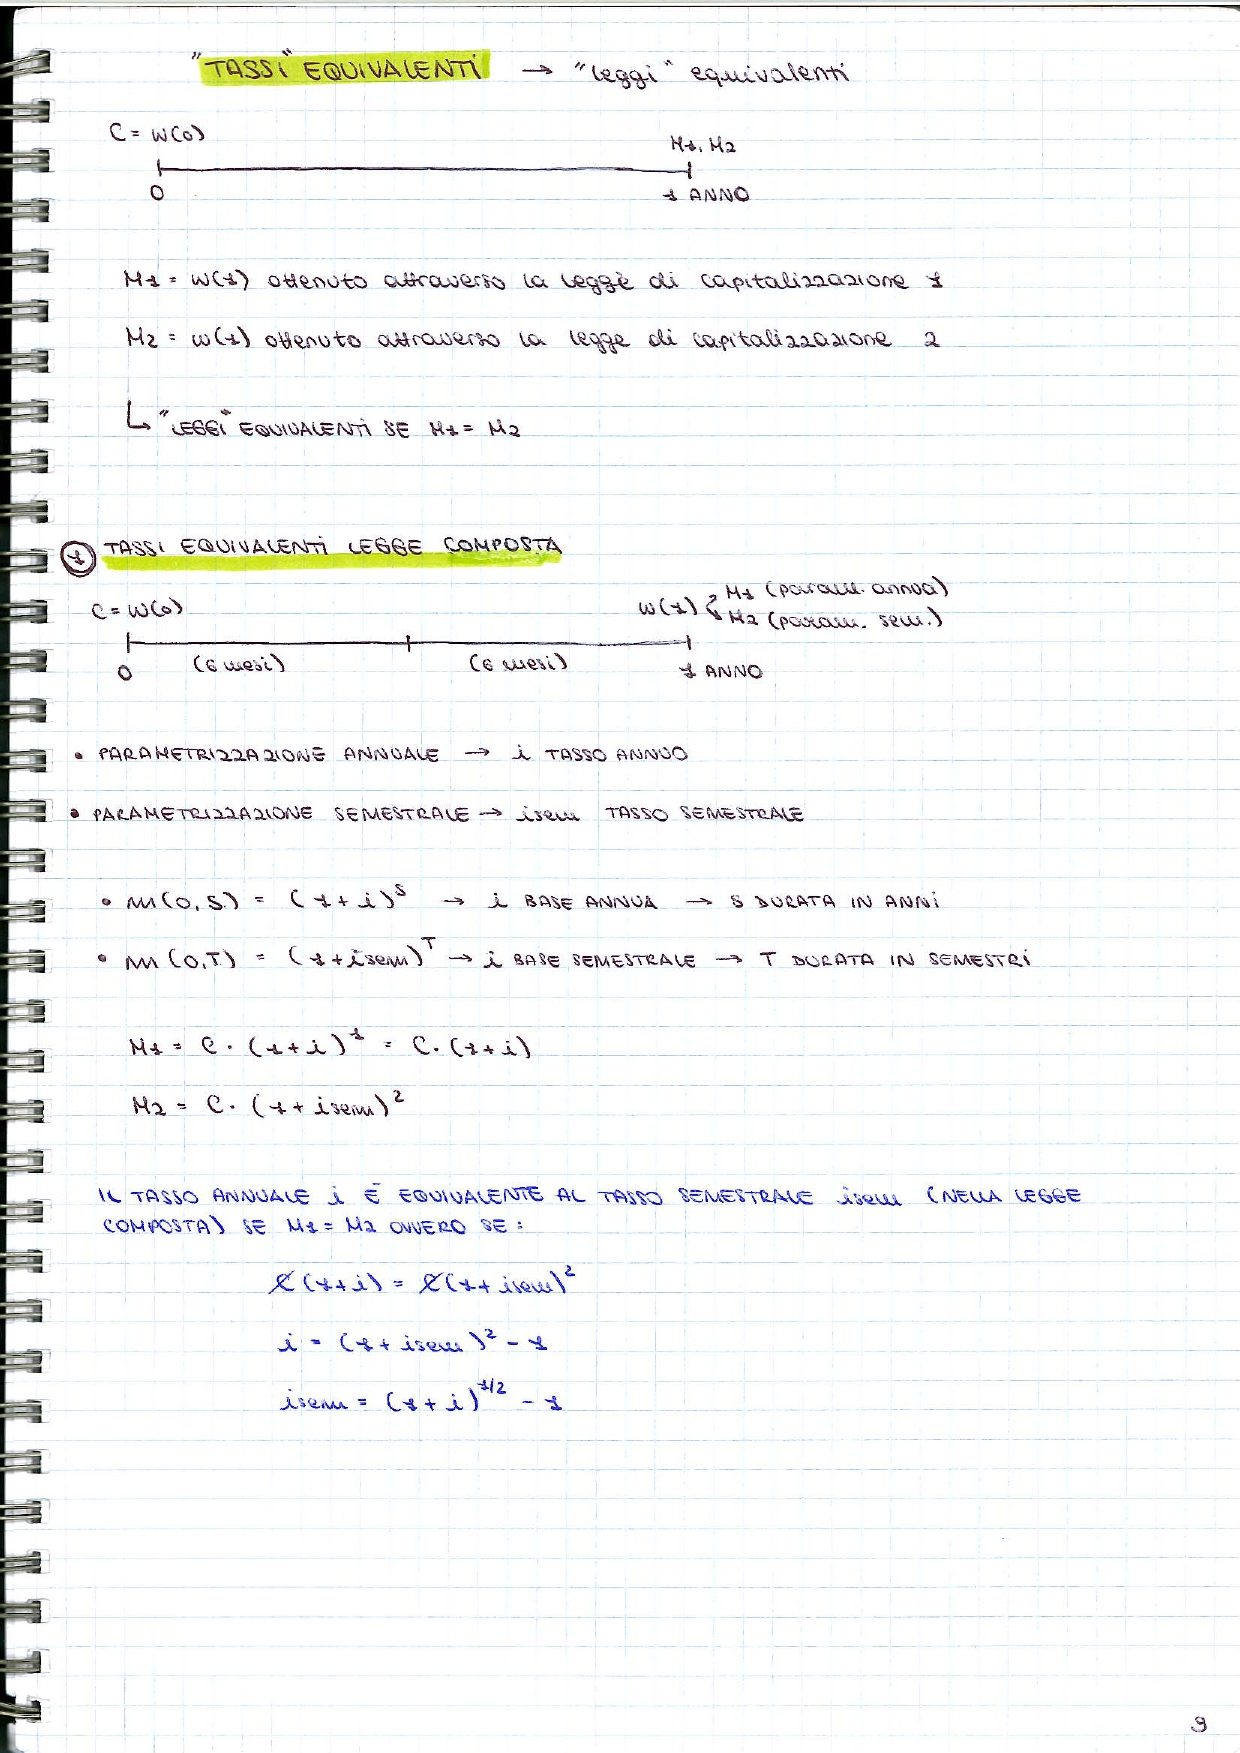 "TASSI" EQUIVALENTI → "leggi" equivalenti
C = W(0)
M1, M2
0
1 ANNO
M1 = W(1) ottenuto attraverso la legge di capitalizzazione 1
M2 = W(1) ottenuto attraverso la legge di capitalizzazione 2
↳ "LEGGI" EQUIVALENTI SE M1 = M2
① TASSI EQUIVALENTI LEGGE COMPOSTA
C = W(0)
W(1)
M1 (param. annua)
M2 (param. sem.)
0
(6 mesi)
(6 mesi)
1 ANNO
• PARAMETRIZZAZIONE ANNUALE → i TASSO ANNUO
• PARAMETRIZZAZIONE SEMESTRALE → isem TASSO SEMESTRALE
• m(0,S) = (1+i)^S → i BASE ANNUA → S DURATA IN ANNI
• m(0,T) = (1+isem)^T → i BASE SEMESTRALE → T DURATA IN SEMESTRI
M1 = C · (1+i)^1 = C · (1+i)
M2 = C · (1+isem)^2
IL TASSO ANNUALE i È EQUIVALENTE AL TASSO SEMESTRALE isem (NELLA LEGGE
COMPOSTA) SE M1 = M2 OVVERO SE:
C(1+i) = C(1+isem)^2
i = (1+isem)^2 - 1
isem = (1+i)^1/2 - 1
9